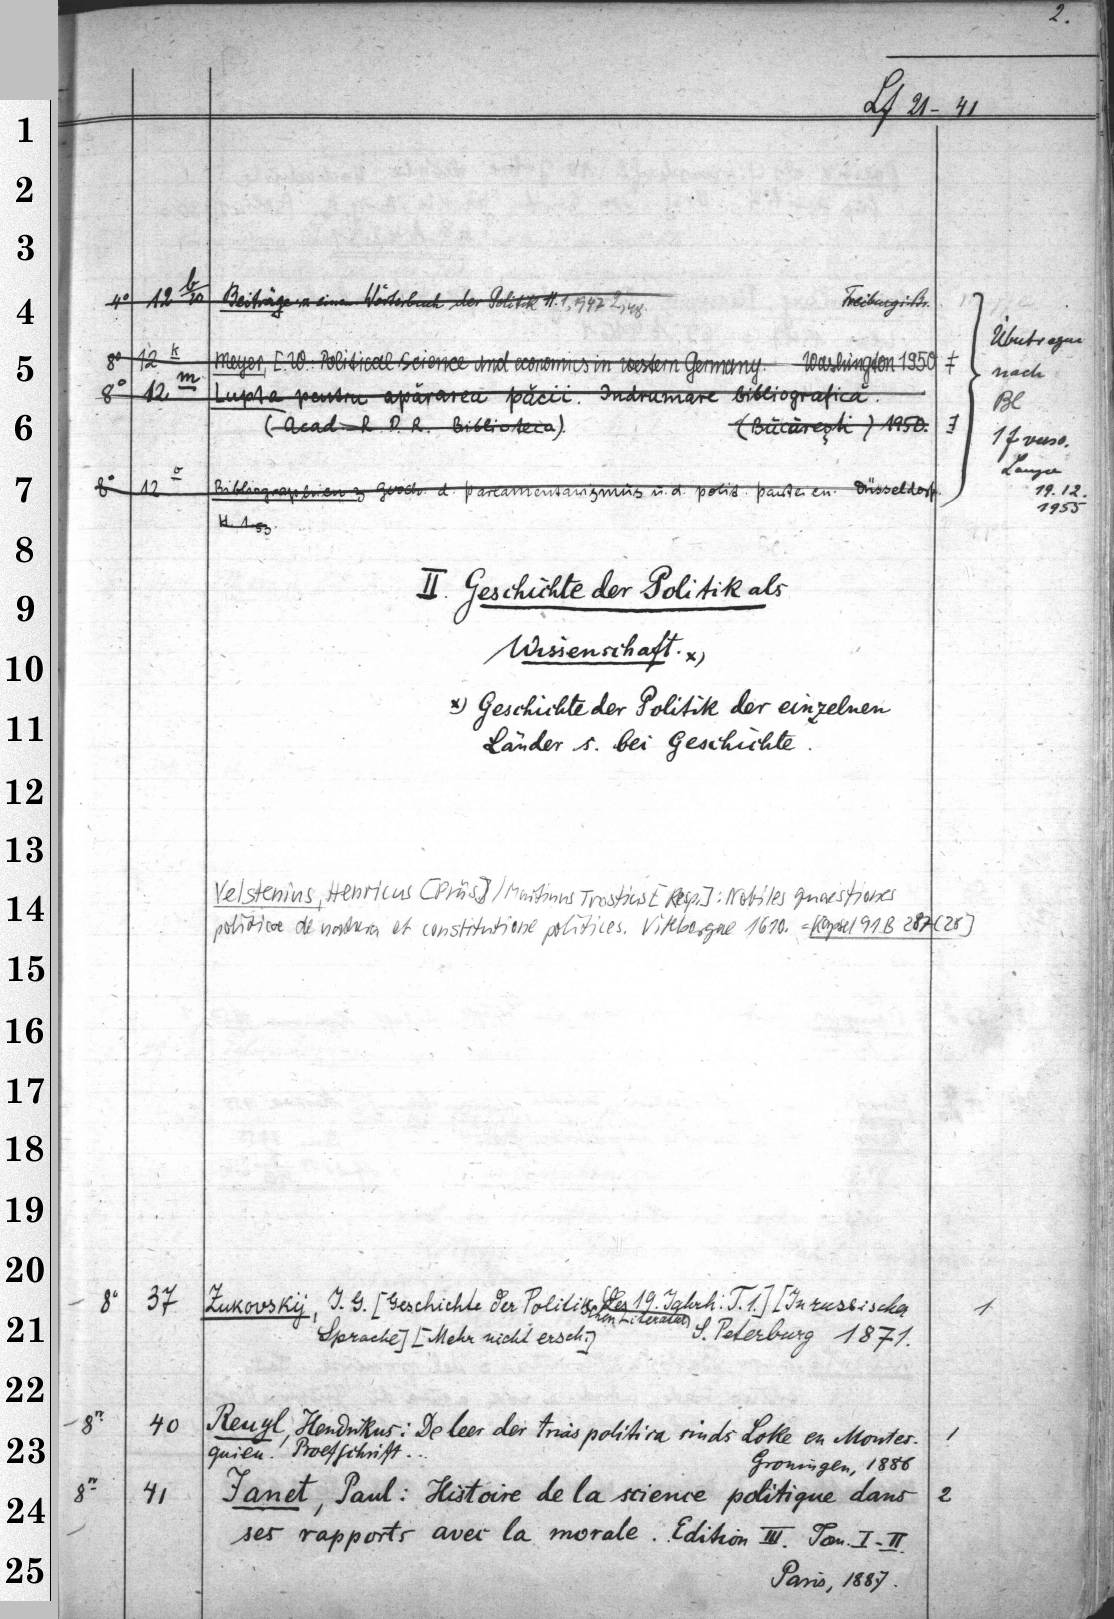 2.
Lf 21 - 41
1
2
3
4
4° 12 b/10 Beiträge z. einem Wörterbuch der Politik H. 1, 1947 2, 48. Freiburg i. Br.
Übertragen
nach
Bl
1 f verso.
Lange
19.12.
1955
5
8° 12 k Meyer, [W. Political Science and economics in western Germany. Washington 1950 ‡
8° 12 m Lupta pentru apărarea păcii. Indrumare bibliografica.
6
(Acad. R. P. R. Biblioteca). (București) 1950. ‡
7
8° 12 o Bibliographien z. Gesch. d. Parlamentarismus u. d. polit. Parteien. Düsseldorf.
H. 1. 53.
8
9
II. Geschichte der Politik als
10
Wissenschaft. x)
11
x) Geschichte der Politik der einzelnen
Länder s. bei Geschichte.
12
13
14
Velstenius, Henricus [Präs.] / Martinus Trostius [Resp.]: Nobiles quaestiones
politicae de natura et constitutione politices. Vitebergae 1610. = Kapsel 91 B 287 (28)
15
16
17
18
19
20
8° 37 Žukovskij, J. G. [Geschichte der Politischen Literatur des 19. Jahrh: T. 1.] [In russischer 1
21
Sprache] [Mehr nicht ersch.] S. Peterburg 1871.
22
8° 40 Reuyl, Hendrikus: De leer der trias politica sinds Loke en Montes- 1
23
quieu. Proefschrift... Groningen, 1886
24
8° 41 Janet, Paul: Histoire de la science politique dans 2
ses rapports avec la morale. Edition III. Tom. I-II.
25
Paris, 1887.